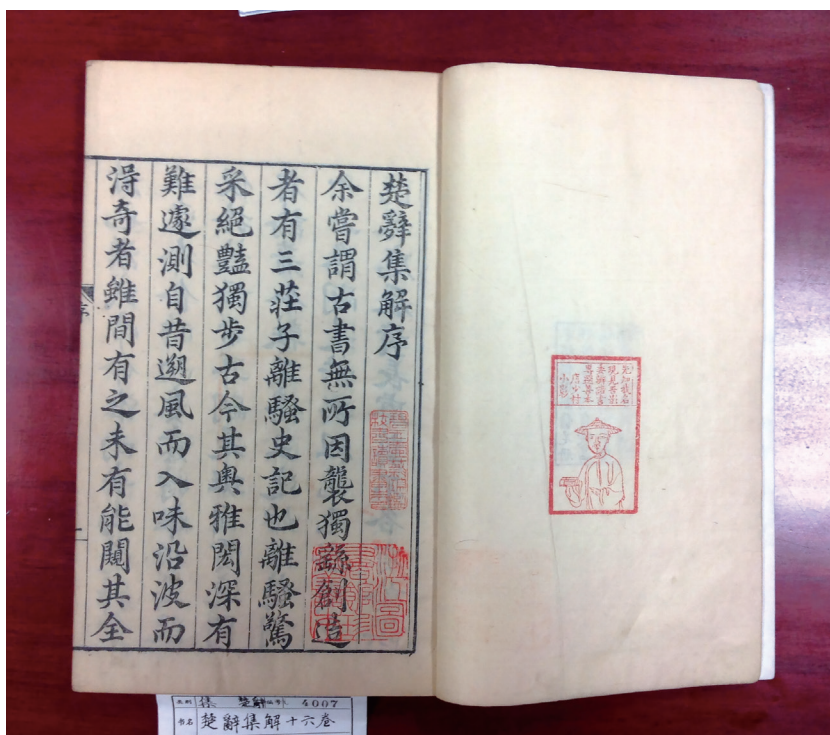 楚辭集解序
余嘗謂古書無所因襲獨繇創造
者有三莊子離騷史記也離騷驚
采絕豔獨步古今其奧雅閎深有
難遽測自昔遡風而入味沿波而
淂奇者雖間有之未有能闚其全
序
集 楚辭 4007
书名 楚辭集解十六卷